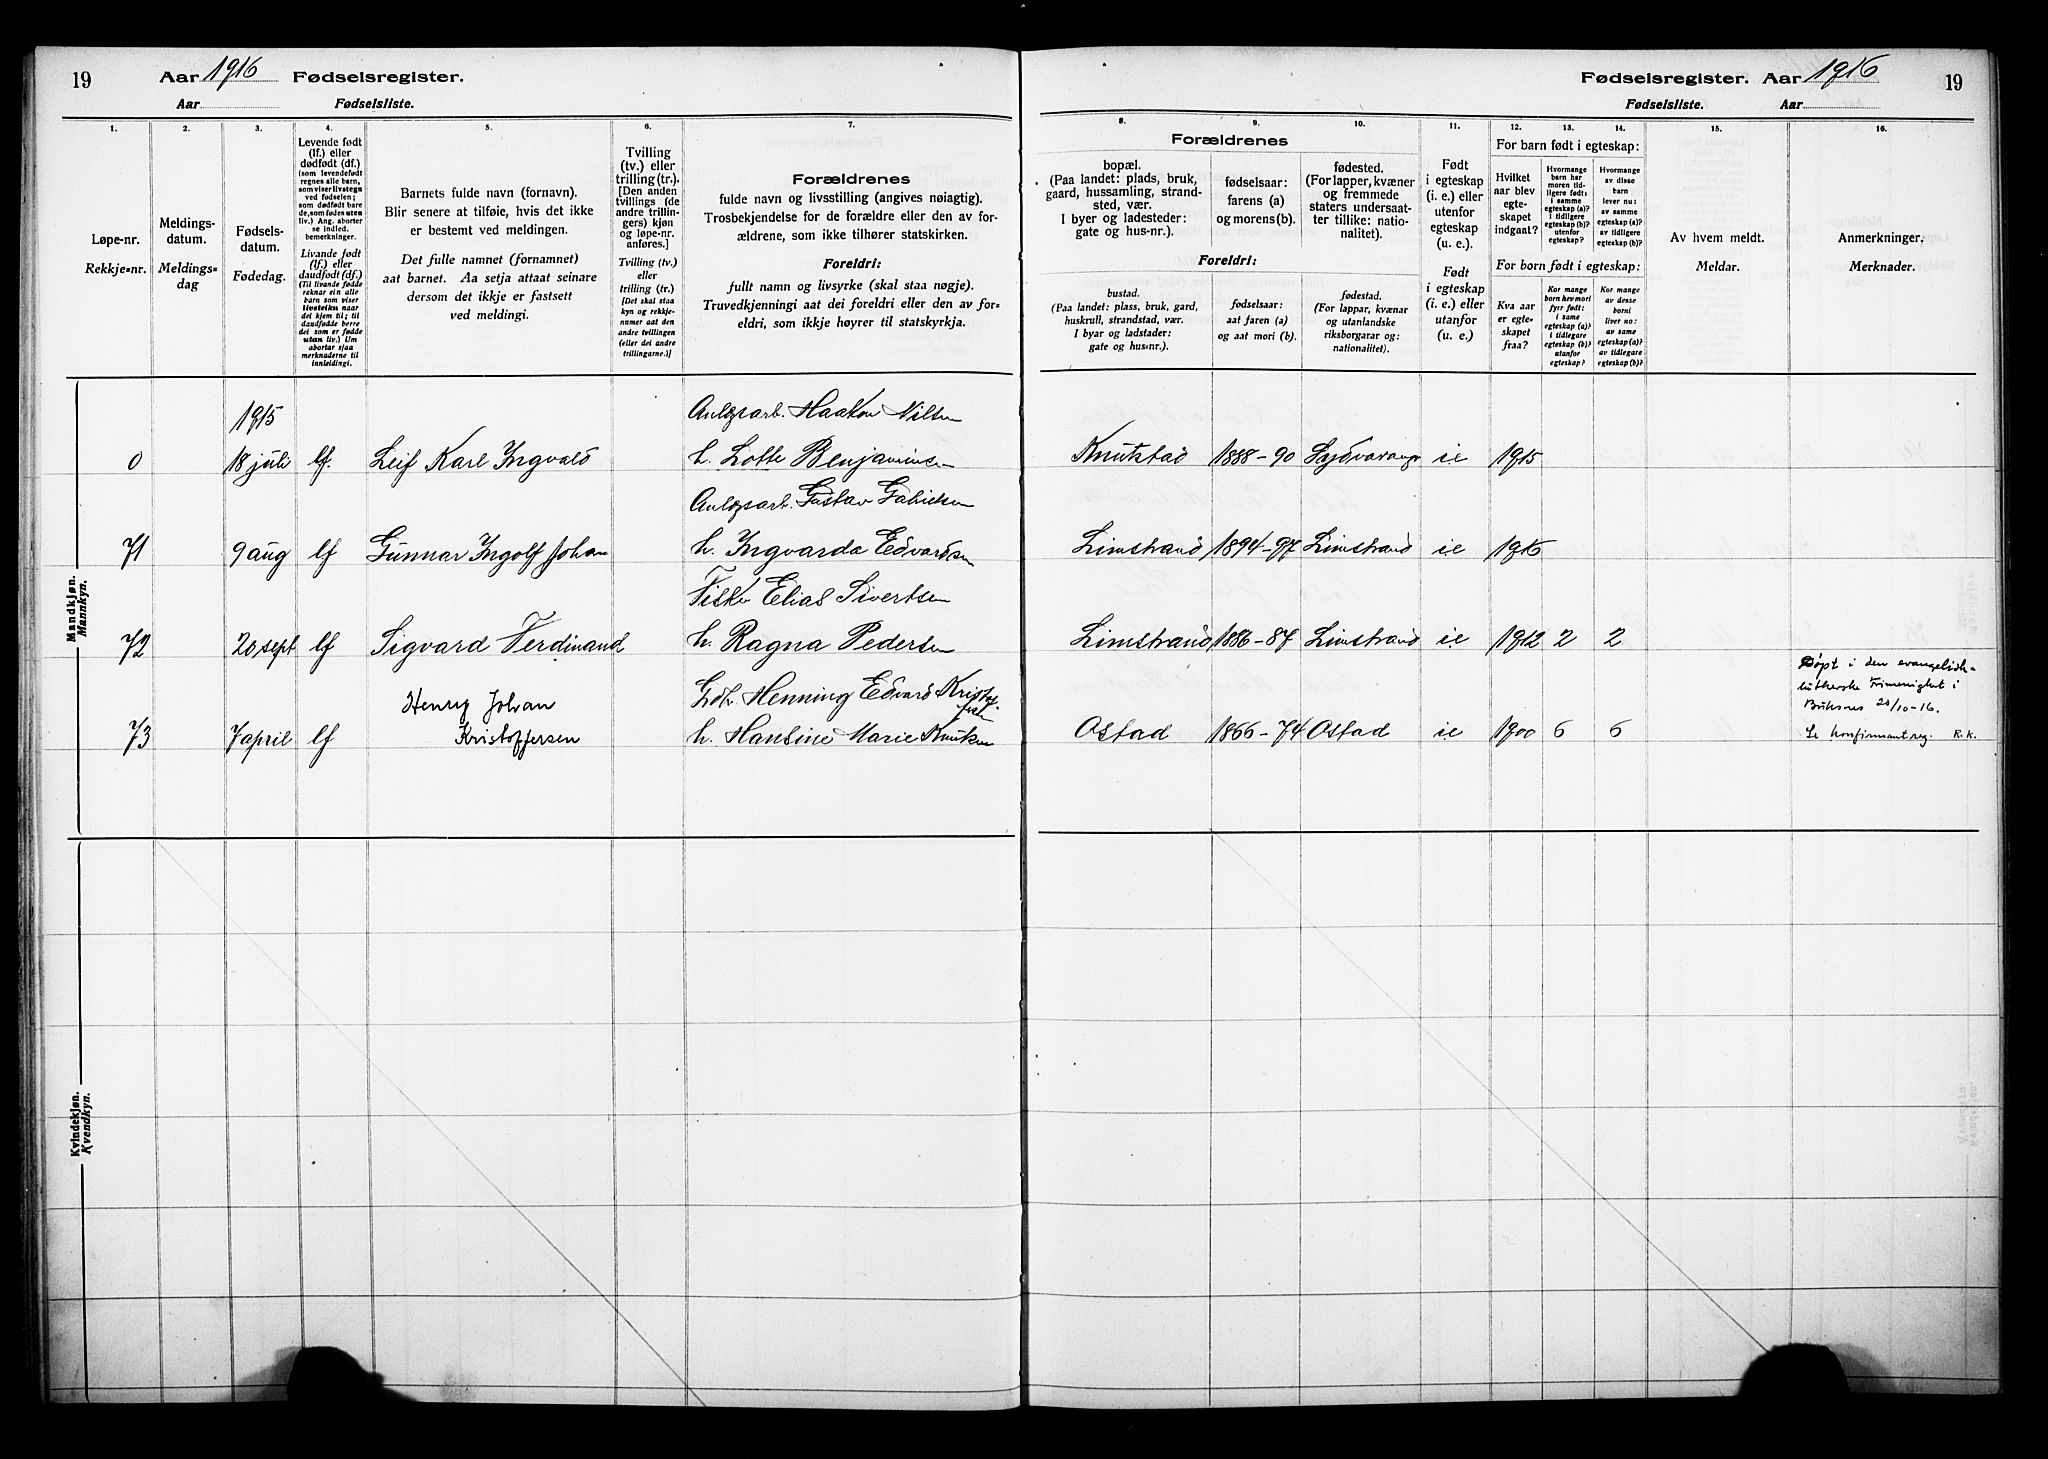 19 Aar 1916 Fødselsregister.
Aar Fødselsliste.
Fødselsregister. Aar 1916 19
Fødselsliste. Aar
1. 2. 3. 4. 5. 6. 7.
Løpe-nr.
Rekkje=nr.
Meldings-
datum.
Meldings=
dag
Fødsels-
datum.
Fødedag.
Levende født
(lf.) eller
dødfødt (df.)
(som levendefødt
regnes alle barn,
som viser livstegn
ved fødselen;
som dødfødt bare
de, som fødes uten
liv.) Ang. aborter
se indled.
bemerkninger.
Livande fødd
(lf.) eller
daudfødt (df.)
(Til livande fødde
reknar ein alle
barn som viser
livsteikn naar
dei kjem til; til
daudfødde berre
dei som er fødde
utan liv.) Um
abortar sjaa
merknaderne til
innleidingi.
Barnets fulde navn (fornavn).
Blir senere at tilføie, hvis det ikke
er bestemt ved meldingen.
Det fulle namnet (fornamnet)
aat barnet. Aa setja attaat seinare
dersom det ikkje er fastsett
ved meldingi.
Tvilling
(tv.) eller
trilling (tr.).
[Den anden
tvillings (de
andre trillin-
gers) kjøn
og løpe-nr.
anføres.]
Tvilling (tv.)
eller
trilling (tr.)
[Det skal staa
kyn og rekkje-
numer aat den
andre tvillingen
(eller dei andre
trillingarne.)]
Forældrenes
fulde navn og livsstilling (angives nøiagtig).
Trosbekjendelse for de forældre eller den av for-
ældrene, som ikke tilhører statskirken.
Foreldri:
fullt namn og livsyrke (skal staa nøgje).
Truvedkjenningi aat dei foreldri eller den av for=
eldri, som ikkje høyrer til statskyrkja.
8. 9. 10. 11. 12. 13. 14. 15. 16.
Forældrenes
bopæl.
(Paa landet: plads, bruk,
gaard, hussamling, strand-
sted, vær.
I byer og ladesteder:
gate og hus-nr.).
fødselsaar:
farens (a)
og morens (b).
fødested.
(For lapper, kvæner
og fremmede
staters undersaat-
ter tillike: natio-
nalitet).
Foreldri:
bustad.
(Paa landet: plass, bruk, gard,
huskrull, strandstad, vær.
I byar og ladstader:
gate og hus=nr.).
fødselsaar:
aat faren (a)
og aat mori (b).
fødestad.
(For lappar, kvænar
og utanlandske
riksborgarar og:
nationalitet).
Født
i egteskap
(i. e.) eller
utenfor
egteskap
(u. e.).
Født
i egteskap
(i. e.) eller
utanfor
(u. e.)
For barn født i egteskap:
Hvilket
aar blev
egte-
skapet
indgaat?
Hvormange
barn har
moren tid-
ligere født:
i samme
egteskap (a)?
i tidligere
egteskap (b)?
utenfor
egteskap?
Hvormange
av disse
barn
lever nu:
av samme
egteskap (a)?
av tidligere
egteskap (b)?
For born født i egteskap:
Kva aar
er egte=
skapet
fraa?
Kor mange
born hev mori
fyrr født:
i same
egteskap (a)?
i tidlegare
egteskap (b)?
utanfor
egteskap?
Kor mange
av desse
borni
liver no:
av same
egteskap (a)?
av tidlegare
egteskap (b)?
Av hvem meldt.
Meldar.
Anmerkninger.
Merknader.
Mandkjøn.
Mannkyn.
1915 Haakon Nilsen
0 18 juli lf. Leif Karl Ingvald h. Lotte Benjaminsen Knutstad 1888-90 Sydvaranger ie 1915
Gustav
71 9 aug lf Gunnar Ingolf Johan h. Ingvarda Edvardsen Limstrand 1894-97 Limstrand ie 1916
Fisker Elias Sivertsen
72 20 sept lf Sigvard Ferdinand h. Ragna Pedersen Limstrand 1886-87 Limstrand ie 1912 2 2
Henry Johan Gdbr. Henning Edvard Kristof-
fersen
Døpt i den evangelisk-
lutherske Frimenighet i
Buksnes 20/10-16.
73 7 april lf Kristoffersen h. Hansine Marie Knutsen Ostad 1866-74 Ostad ie 1900 6 6 Se konfirmantreg. R.K.
Kvindekjøn.
Kvendkyn.